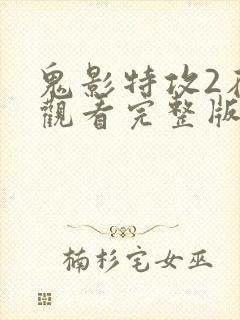 鬼影特攻2
觀看完整版
楠杉宅女巫